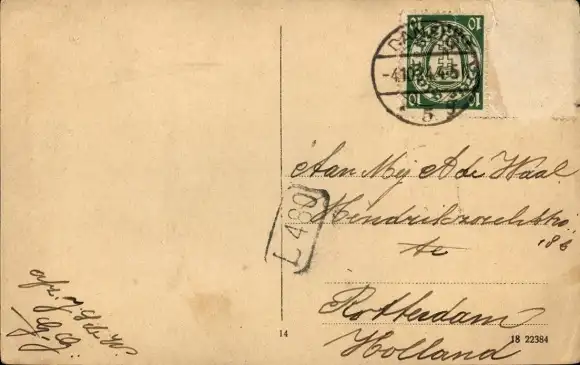 10 10
DANZIG
-4.10.24.4-5
5
10 10
Aan Mej A de Waal
186
te
Rotterdam
Holland
L 460
afz. J. G. de W.
14
18 22384